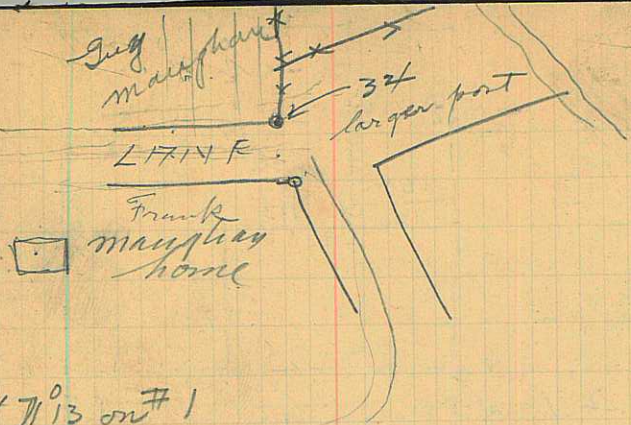 Guy
Maughan
34
larger post
LANE
Frank
Maughan
home
13 on #1